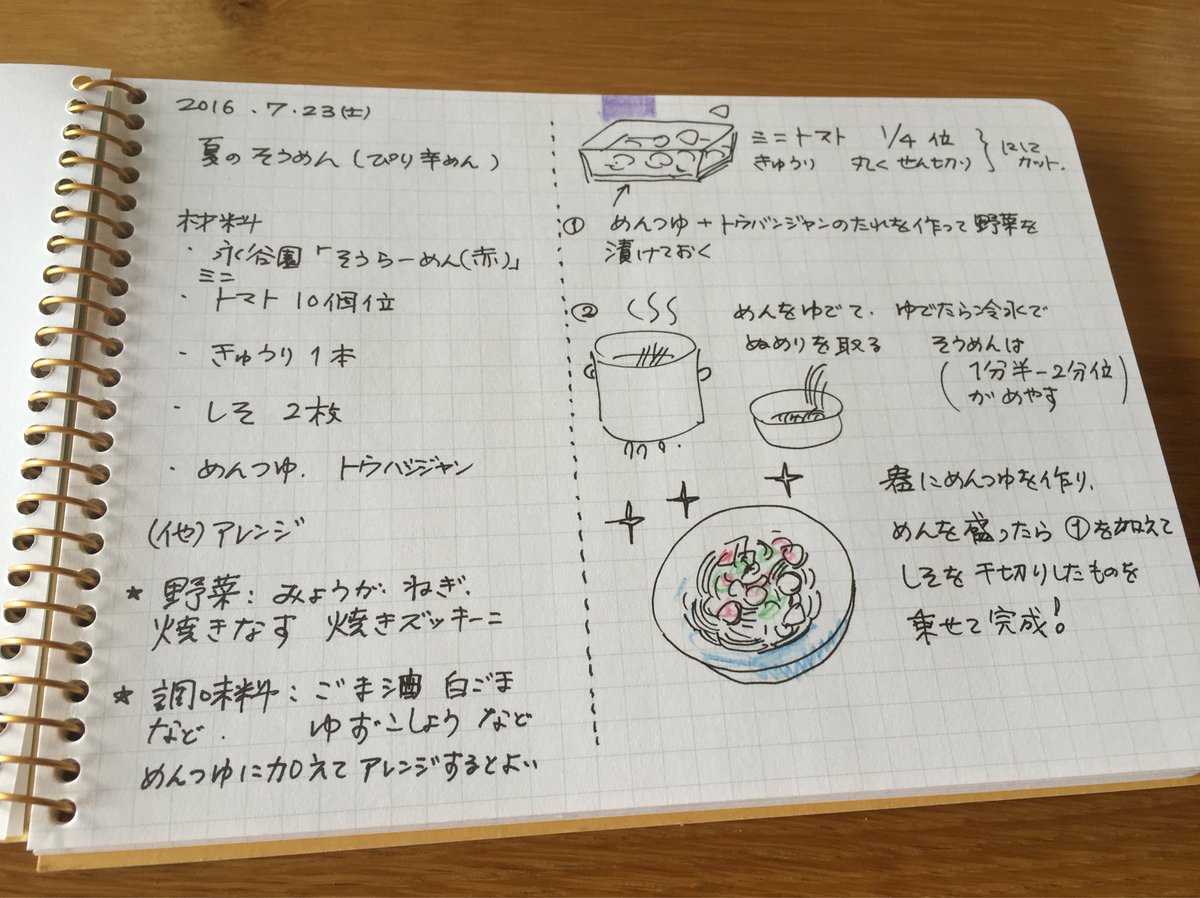 2016.7.23(土)
夏のそうめん(ぴり辛めん)
材料
・永谷園「そうらーめん(赤)」
・ミニトマト 10個位
・きゅうり 1本
・しそ 2枚
・めんつゆ. トウバンジャン
(他)アレンジ
★ 野菜: みょうが. ねぎ.
焼きなす 焼きズッキーニ
★ 調味料: ごま油 白ごま
など. ゆずこしょう など
めんつゆに加えてアレンジするとよい
ミニトマト 1/4位
きゅうり 丸く せん切り
にして
カット.
① めんつゆ+トウバンジャンのたれを作って野菜を
漬けておく
② めんをゆでて. ゆでたら冷水で
ぬめりを取る そうめんは
(1分半-2分位
がめやす)
器にめんつゆを作り.
めんを盛ったら ①を加えて
しそを千切りしたものを
乗せて完成!